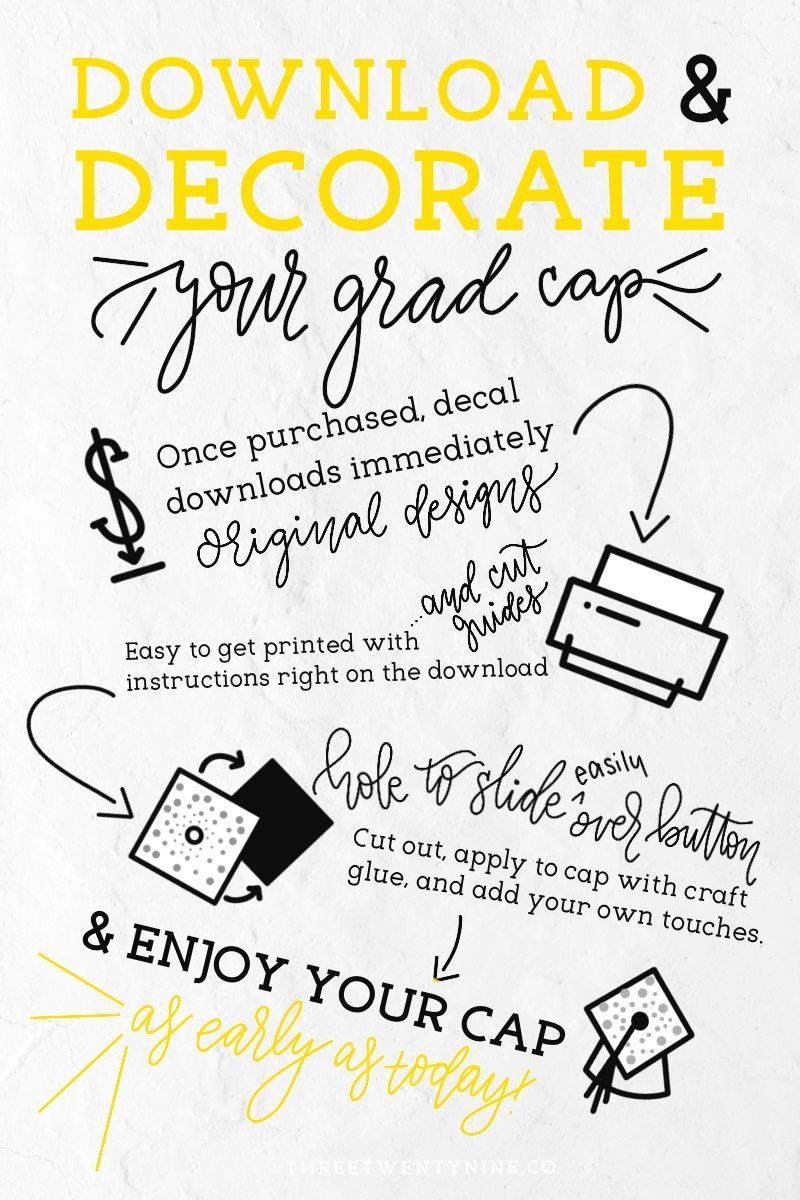 DOWNLOAD &
DECORATE
your grad cap
Once purchased, decal
downloads immediately
original designs
...and cut
guides
Easy to get printed with
instructions right on the download
hole to slide easily
^
over button
Cut out, apply to cap with craft
glue, and add your own touches.
& ENJOY YOUR CAP
as early as today!
THREETWENTYNINE.CO